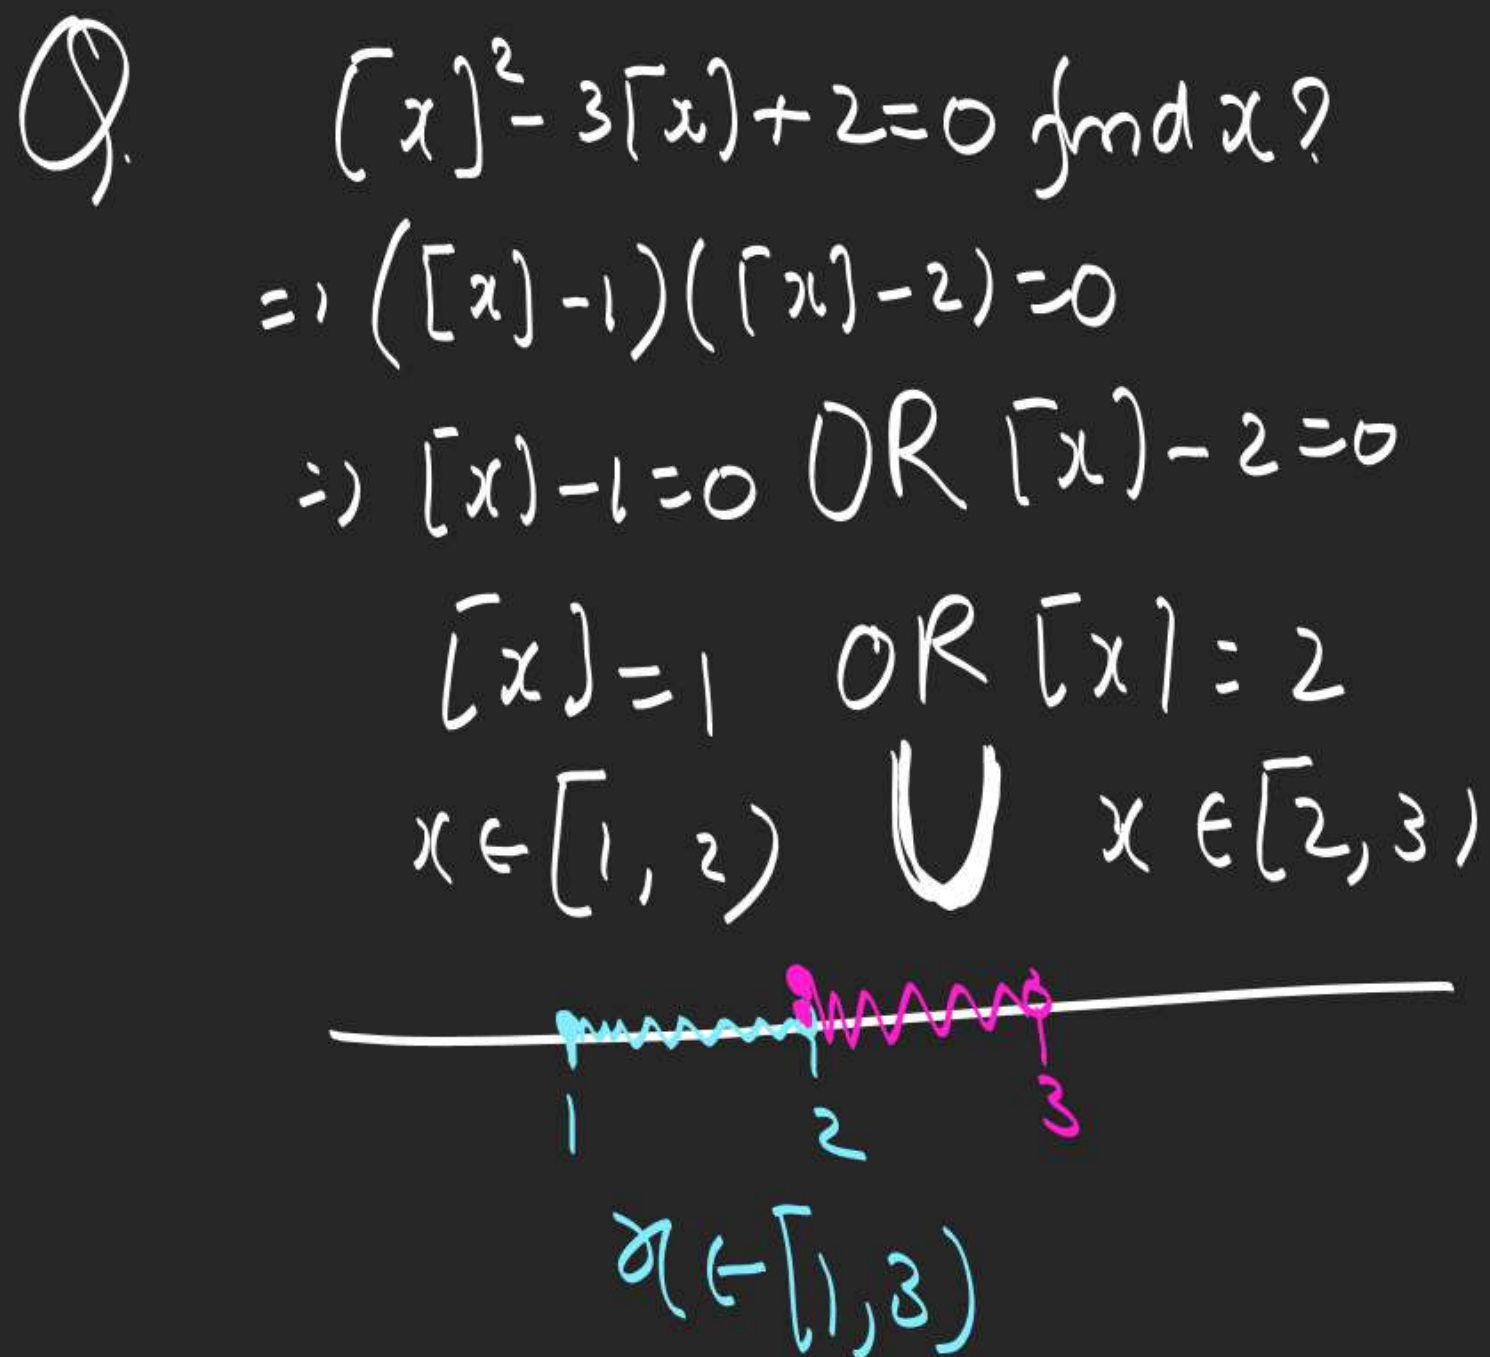 Q. [x]² - 3[x] + 2 = 0 find x?
=> ([x] - 1)([x] - 2) = 0
=> [x] - 1 = 0 OR [x] - 2 = 0
[x] = 1 OR [x] = 2
x ∈ [1, 2) U x ∈ [2, 3)
1 2 3
x ∈ [1, 3)